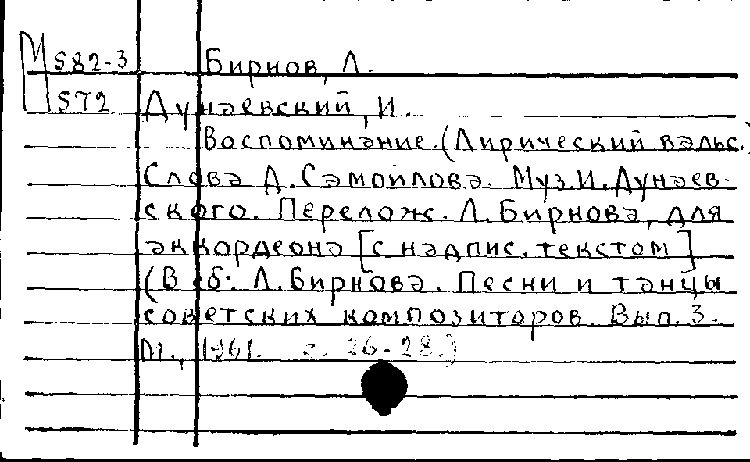 М 582-3 Бирнов, Л.
572 Дунаевский, И.
Воспоминание. (Лирический вальс.)
Слова Д. Самойлова. Муз. И. Дунаев-
ского. Перелож. Л. Бирнова, для
аккордеона [с надпис. текстом]
(В сб: Л. Бирнова. Песни и танцы
советских композиторов. Вып. 3.
М., 1961. с. 26-28.)